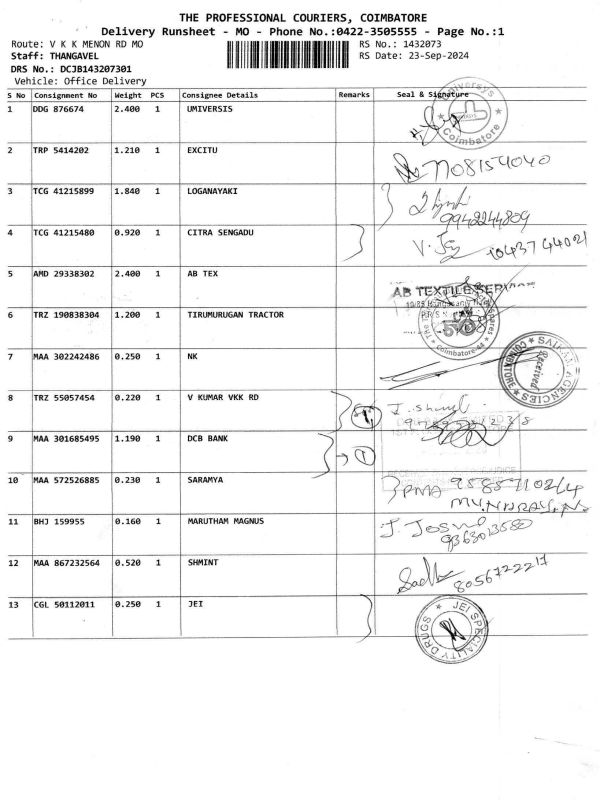 THE PROFESSIONAL COURIERS, COIMBATORE
Delivery Runsheet - MO - Phone No.:0422-3505555 - Page No.:1
Route: V K K MENON RD MO RS No.: 1432073
Staff: THANGAVEL RS Date: 23-Sep-2024
DRS No.: DCJB143207301
Vehicle: Office Delivery
S No Consignment No Weight PCS Consignee Details Remarks Seal & Signature
1 DDG 876674 2.400 1 UMIVERSIS
Universys
Coimbatore
2 TRP 5414202 1.210 1 EXCITU
7708154040
3 TCG 41215899 1.840 1 LOGANAYAKI
9942244809
4 TCG 41215480 0.920 1 CITRA SENGADU
5 AMD 29338302 2.400 1 AB TEX
AB TEXTILE
6 TRZ 190838304 1.200 1 TIRUMURUGAN TRACTOR
Coimbatore-44
7 MAA 302242486 0.250 1 NK
SAIKAN AGENCIES
Received
COIMBATORE
8 TRZ 55057454 0.220 1 V KUMAR VKK RD
9 MAA 301685495 1.190 1 DCB BANK
10 MAA 572526885 0.230 1 SARAMYA
11 BHJ 159955 0.160 1 MARUTHAM MAGNUS
9363013580
12 MAA 867232564 0.520 1 SHMINT
8056722217
13 CGL 50112011 0.250 1 JEI
JEI SPECIALITY DRUGS